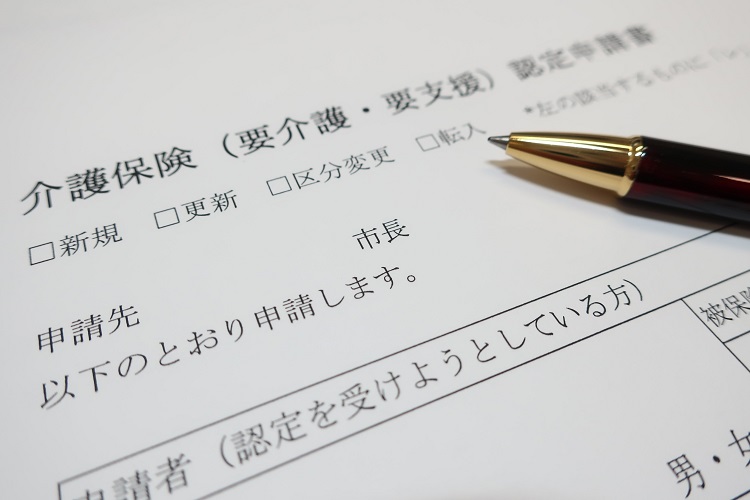 介護保険（要介護・要支援）認定申請書
*左の該当するものに「レ
□新規 □更新 □区分変更 □転入
市長
申請先
以下のとおり申請します。
申請者（認定を受けようとしている方）
被保険
男・女